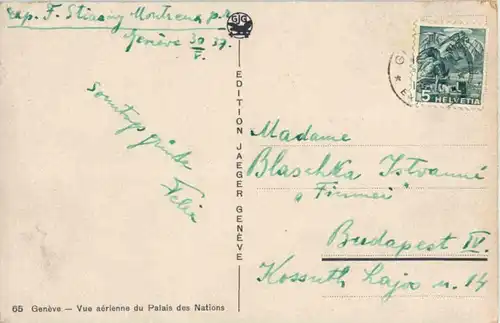 exp. F. Stiasny Montreux p. r.
Genève 30/V. 37.
GG
5 HELVETIA
EDITION JAEGER GENÈVE
Sonntagsgrüße
Felix
Madame
Blaschka Istvanné
"Firmei"
Budapest IV.
Kossuth Lajos u. 14
65 Genève — Vue aérienne du Palais des Nations